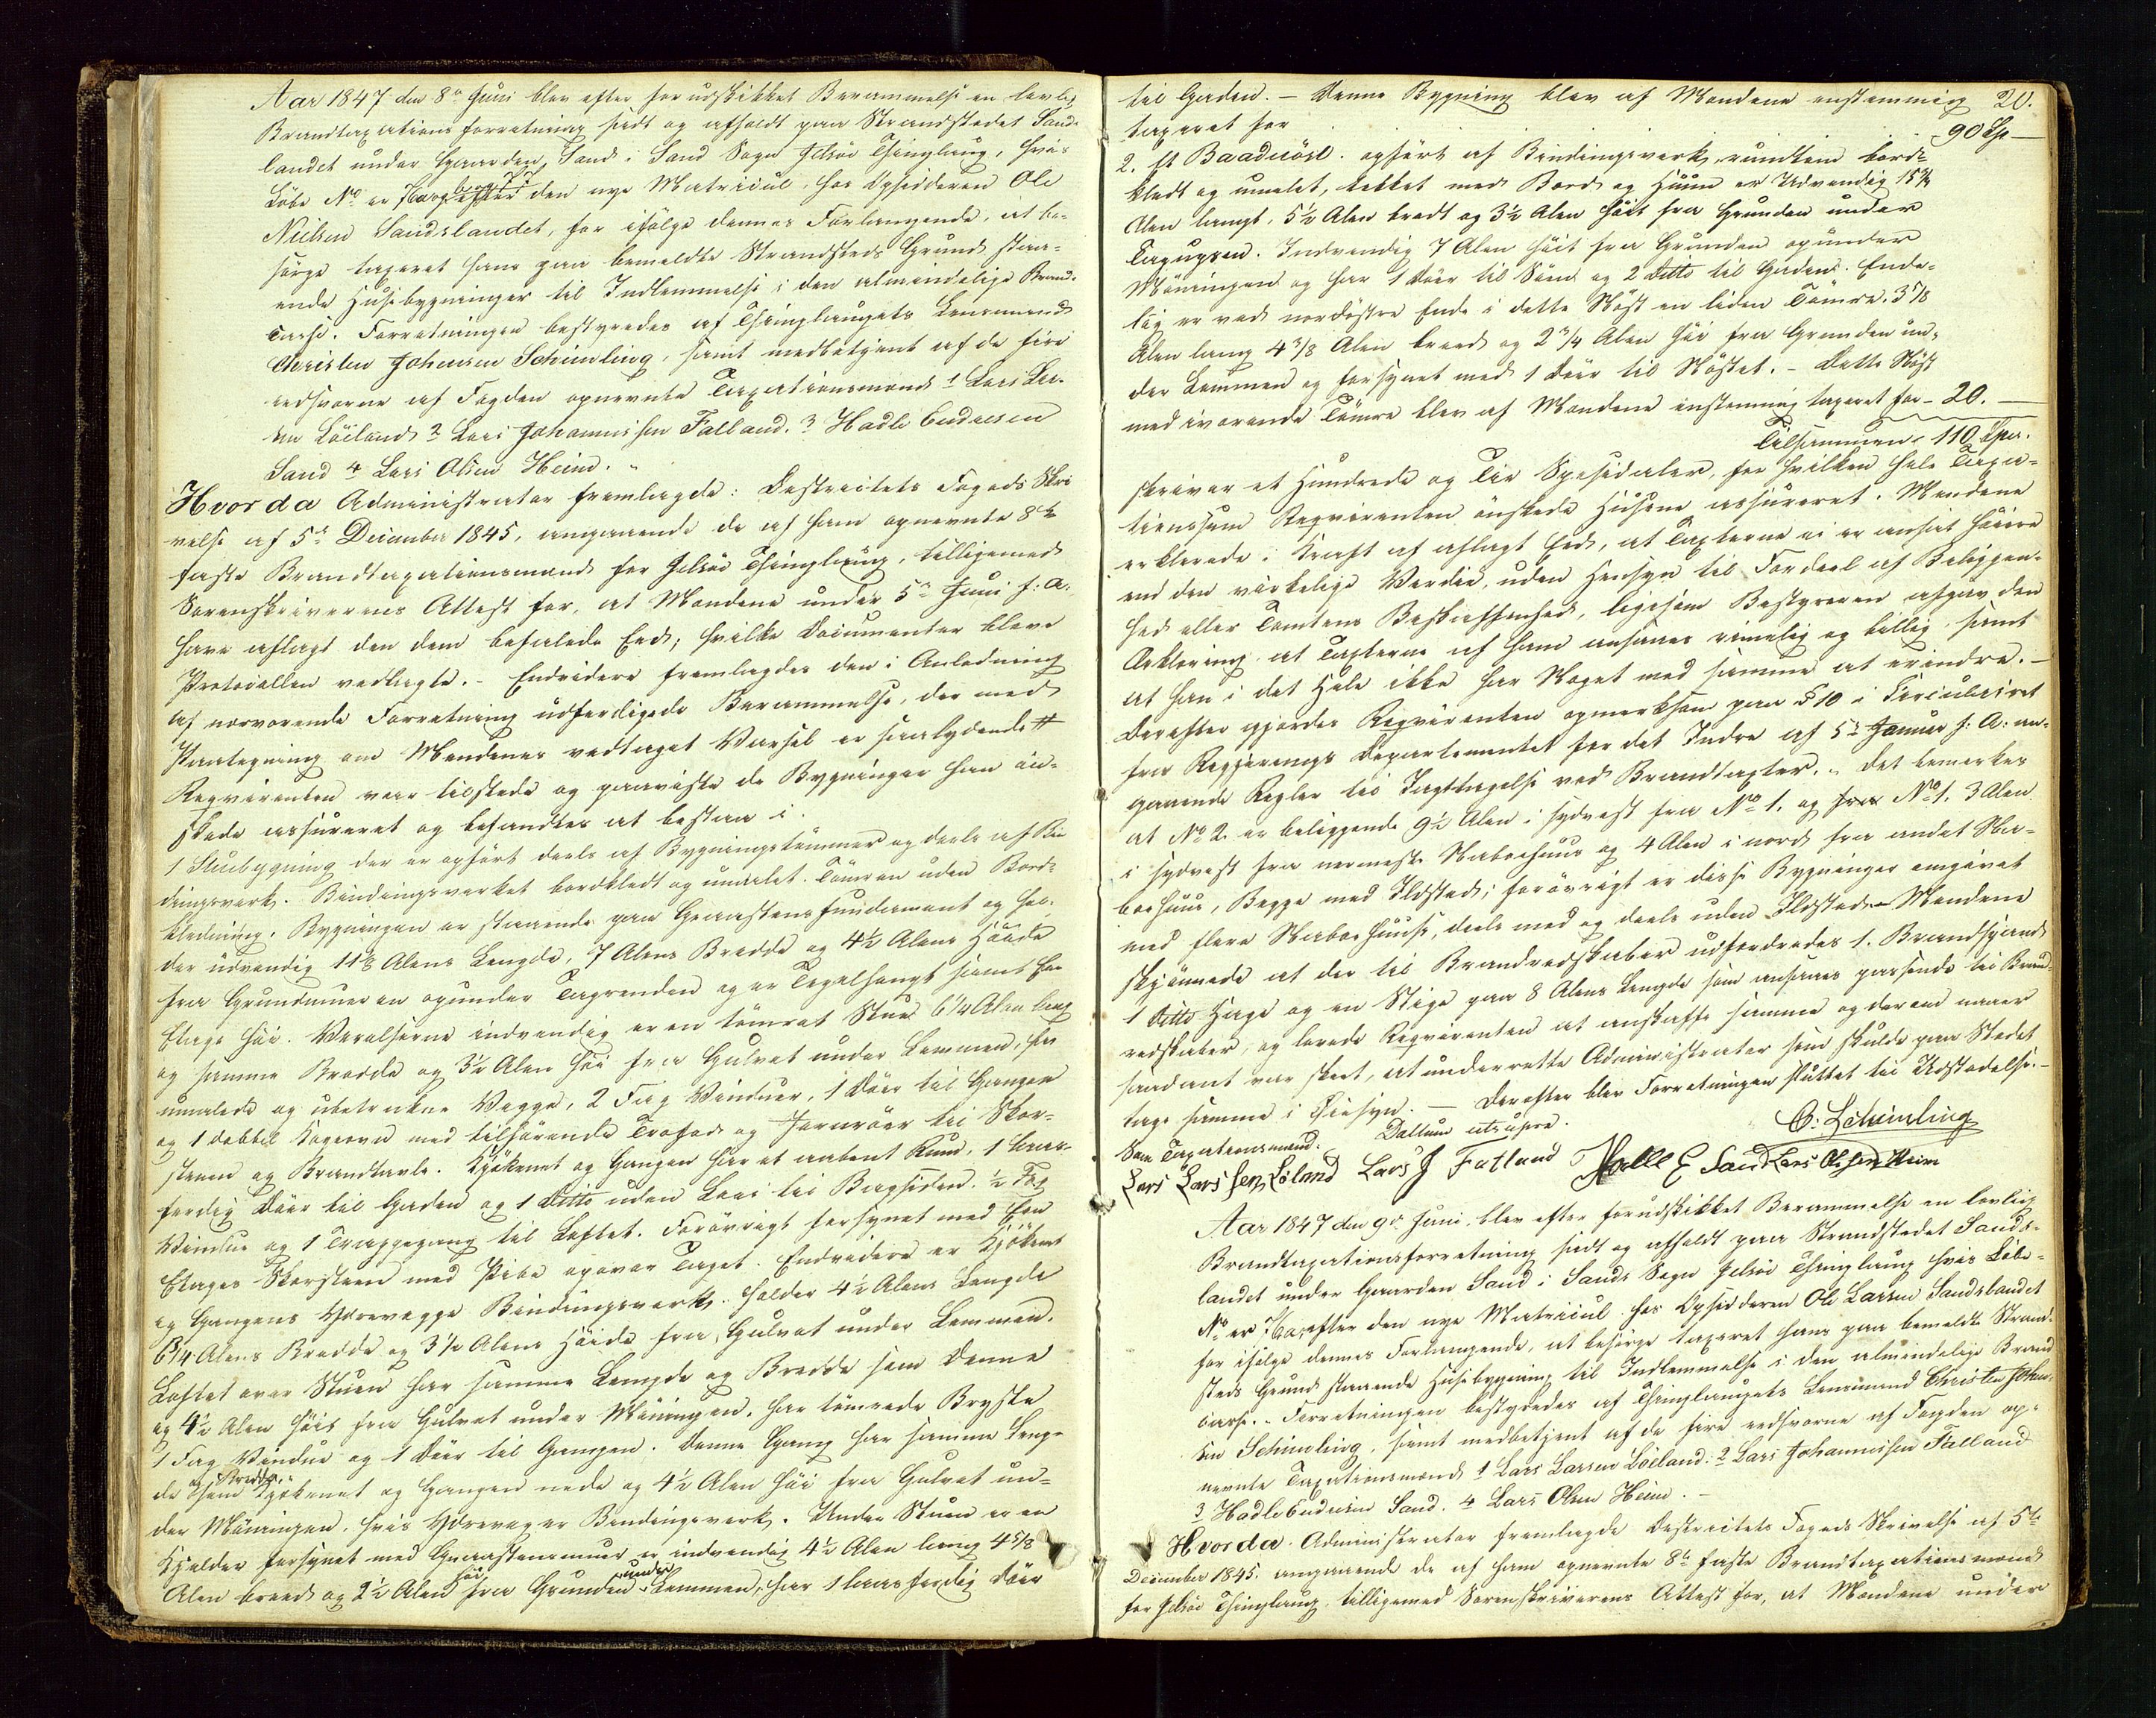 Aar 1847 den 8de Juni blev efter forudskikket Berammelse en lovlig
Brandtaxations forretning sadt og afholdt paa Strandstedet Sands-
landet under Gaarden Sand i Sand Sogn Jelsøe Thinglaug, hvis
Løbe No er efter den nye Matricul, hos Opsidderen Ole
Nielsen Sandslandet, for ifølge dennes Forlangende, at be-
sørge taxeret hans paa bemeldte Strandsteds Grund staa-
ende Husebygninger til Indlemmelse i den almindelige Brand-
Casse. Forretningen bestyredes af Thinglaugets Lensmand
Christen Johnsen Schimling, samt medbetjent af de fire
eedsvorne af Fogden opnevnte Taxationsmænd 1 Lars Lar-
sen Löiland 2 Lars Johannissen Fatland. 3 Hadle Endresen
Sand 4 Lars Olsen Heim.
Hvorda Administrator fremlagde: Destrictets Fogeds Skri-
velse af 5te December 1845, angaaende de af ham opnevnte 8te
faste Brandtaxationsmænd for Jelsøe Thinglaug, tilligemed
Sorenskriverens Attest for, at Mændene under 5te Juni f: A.
have aflagt den dem befalede Eed; hvilke Documenter bleve
Protocollen vedlagte. - Endvidere fremlagdes den i Anledning
af nærværende Forretning udferdigede Berammelse, der med
Paategning om Mændenes vedtaget Varsel er saalydende #
Reqvirenten var tilstede og paaviste de Bygninger han ön-
skede assureret og befandtes at bestaa i.
1 Stuebygning der er opført deels af Bygningstømmer og deels af Bin-
dingsverk. Bindingsverket bordkledt og umalet. Tømren uden Bord-
kledning. Bygningen er staaende paa Graasteens fundament og hol-
der udvendig 11 Alens Lengde, 7 Alens Bredde og 4½ Alens Høide
fra Grundmuren opunder Tagrenden og er Tegelhengt samt to
Etage høi. Verelserne indvendig er en tømret Stue 6¼ Alen lang
og samme Bredde og 3½ Alen høi fra Gulvet under Lemmen, har
umalede og ubetrukne Vegge, 2 Fag Vinduer, 1 Døer til Gangen
og 1 dobbel Kogeovn med tilhørende Trefod og Jernrøer til Skor-
stenen og Brandtavle. Kjøkenet og Gangen har et aabent Rum, 1 laas-
ferdig Døer til Gaden og 1 Ditto uden Laas til Bagsiden. ½ Fag
Vindue og 1 Trappegang til Loftet. Forøvrigt forsynet med een
Etages Skorsteen med Pibe opover Taget. Endvidere er Kjøkenet
og Gangens Ydrevegge Bindingsverk. Holder 4½ Alens Lengde
6¼ Alens Bredde og 3½ Alens Høide fra Gulvet under Lemmen.
Loftet over Stuen har samme Lengde og Bredde som denne
og 4½ Alen høit fra Gulvet under Møningen. har tømrede Bryste
1 Fag Vindue og 1 Døer til Gangen. Denne Gang har samme Leng-
de og Bredde som Kjøkenet og Gangen nede og 4½ Alen høi fra Gulvet un-
der Møningen. hvis Ydreveg er Bindingsverk. Under Stuen er en
Kjelder forsynet med Graasteensmuur er indvendig 4½ Alen lang 4⅝
Alen breed og 2½ Alen høi fra Grunden under Lemmen, har 1 laasferdig Døer
til Gaden. - Denne Bygning blev af Mændene enstemmig 20.
taxeret for 90 Sp -
2. Et Baadnöst. opført af Bindingsverk, rundtom bord-
kledt og umalet, tekket med Bord og Huun er Udvendig 15¾
Alen langt, 5½ Alen bredt og 3½ Alen høit fra Grunden under
Tagugsen. Indvendig 7 Alen høit fra Grunden opunder
Møningen og har 1 Døer til Søen og 2 Ditto til Gaden. Ende-
lig er ved nordöstre Ende i dette Nøst en liden Tømre. 3⅞
Alen lang 4⅜ Alen breed og 2¾ Alen høi fra Grunden un-
der Lemmen og forsynet med 1 Døer til Nøstet. - Dette Nøst
med iverende Tømre blev af Mændene enstemmig taxeret for - 20. -
Tilsammen - 110 Spd.
skriver et Hundrede og Tie Spesidaler, for hvilken hele Taxa-
tionssum Reqvirenten ønskede Husene assureret. Mændene
erklerede i Kraft af aflagt Eed, at Taxterne ei er ansat høiere
end den virkelige Verdie, uden Hensyn til Fordeel af Beliggen-
hed eller Tomtens Beskaffenhed, ligesom Bestyreren afgav den
Erklering at Taxterne af ham ansees rimelig og billig samt
at han i det Hele ikke har Noget med samme at erindre. -
Derefter gjordes Reqvirenten opmerksom paa § 10 i Circulairet
fra Regjerings Departementet for det Indre af 5te Januar f: A: an-
gaaende Regler til Iagttagelse ved Brandtaxter. - Det bemerkes
at No 2 er beliggende 9½ Alen i sydvest fra No 1. og fra No 1. 3 Alen
i sydvest fra nermeste Naboehuus og 4 Alen i nord fra andet Na-
boehuus, Begge med Ildsted; forøvrigt er disse Bygninger omgivet
med flere Naboehuuse, deels med og deels uden Ildsted. - Mændene
skjønnede at der til Brandredskaber udfordredes 1. Brandspand
1 Ditto Hage og en Stige paa 8 Alens Lengde som ansaaes passende til Brand-
redskaber, og lovede Reqvirenten at anskaffe samme og derom naar
saadant var skeet, at underrette Administrator som skulde paa Stedet
tage samme i Øiesyn. - Derefter blev Forretningen sluttet til Udstedelse. -
Datum utsupra. C: Schimling
Som Taxationsmænd.
Lars Larssen Löland Lars J Fatland Halle E Sand Lars Olssen Heim
Aar 1847 den 9de Juni, blev efter forudskikket Berammelse en lovlig
Brandtaxationsforretning sadt og afholdt paa Strandstedet Sands-
landet under Gaarden Sand i Sands Sogn Jelsøe Thinglaug hvis Løbe-
No er efter den nye Matricul hos Opsidderen Ole Larsen Sandslandet
for ifølge dennes Forlangende, at besørge taxeret hans paa bemeldte Strand-
steds Grund staaende Husebygning til Indlemmelse i den almindelige Brand-
casse. - Forretningen bestyredes af Thinglaugets Lensmand Christen John-
sen Schimling, samt medbetjent af de fire eedsvorne af Fogden op-
nevnte Taxationsmænd 1 Lars Larsen Löeland: 2 Lars Johannissen Fatland
3 Hadle Endresen Sand. 4 Lars Olsen Heim. -
Hvorda Administrator fremlagde Destrictets Fogeds Skrivelse af 5te
December 1845. angaaende de af ham opnevnte 8te faste Brandtaxationsmænd
for Jelsøe Thinglaug, tilligemed Sorenskriverens Attest for, at Mændene under